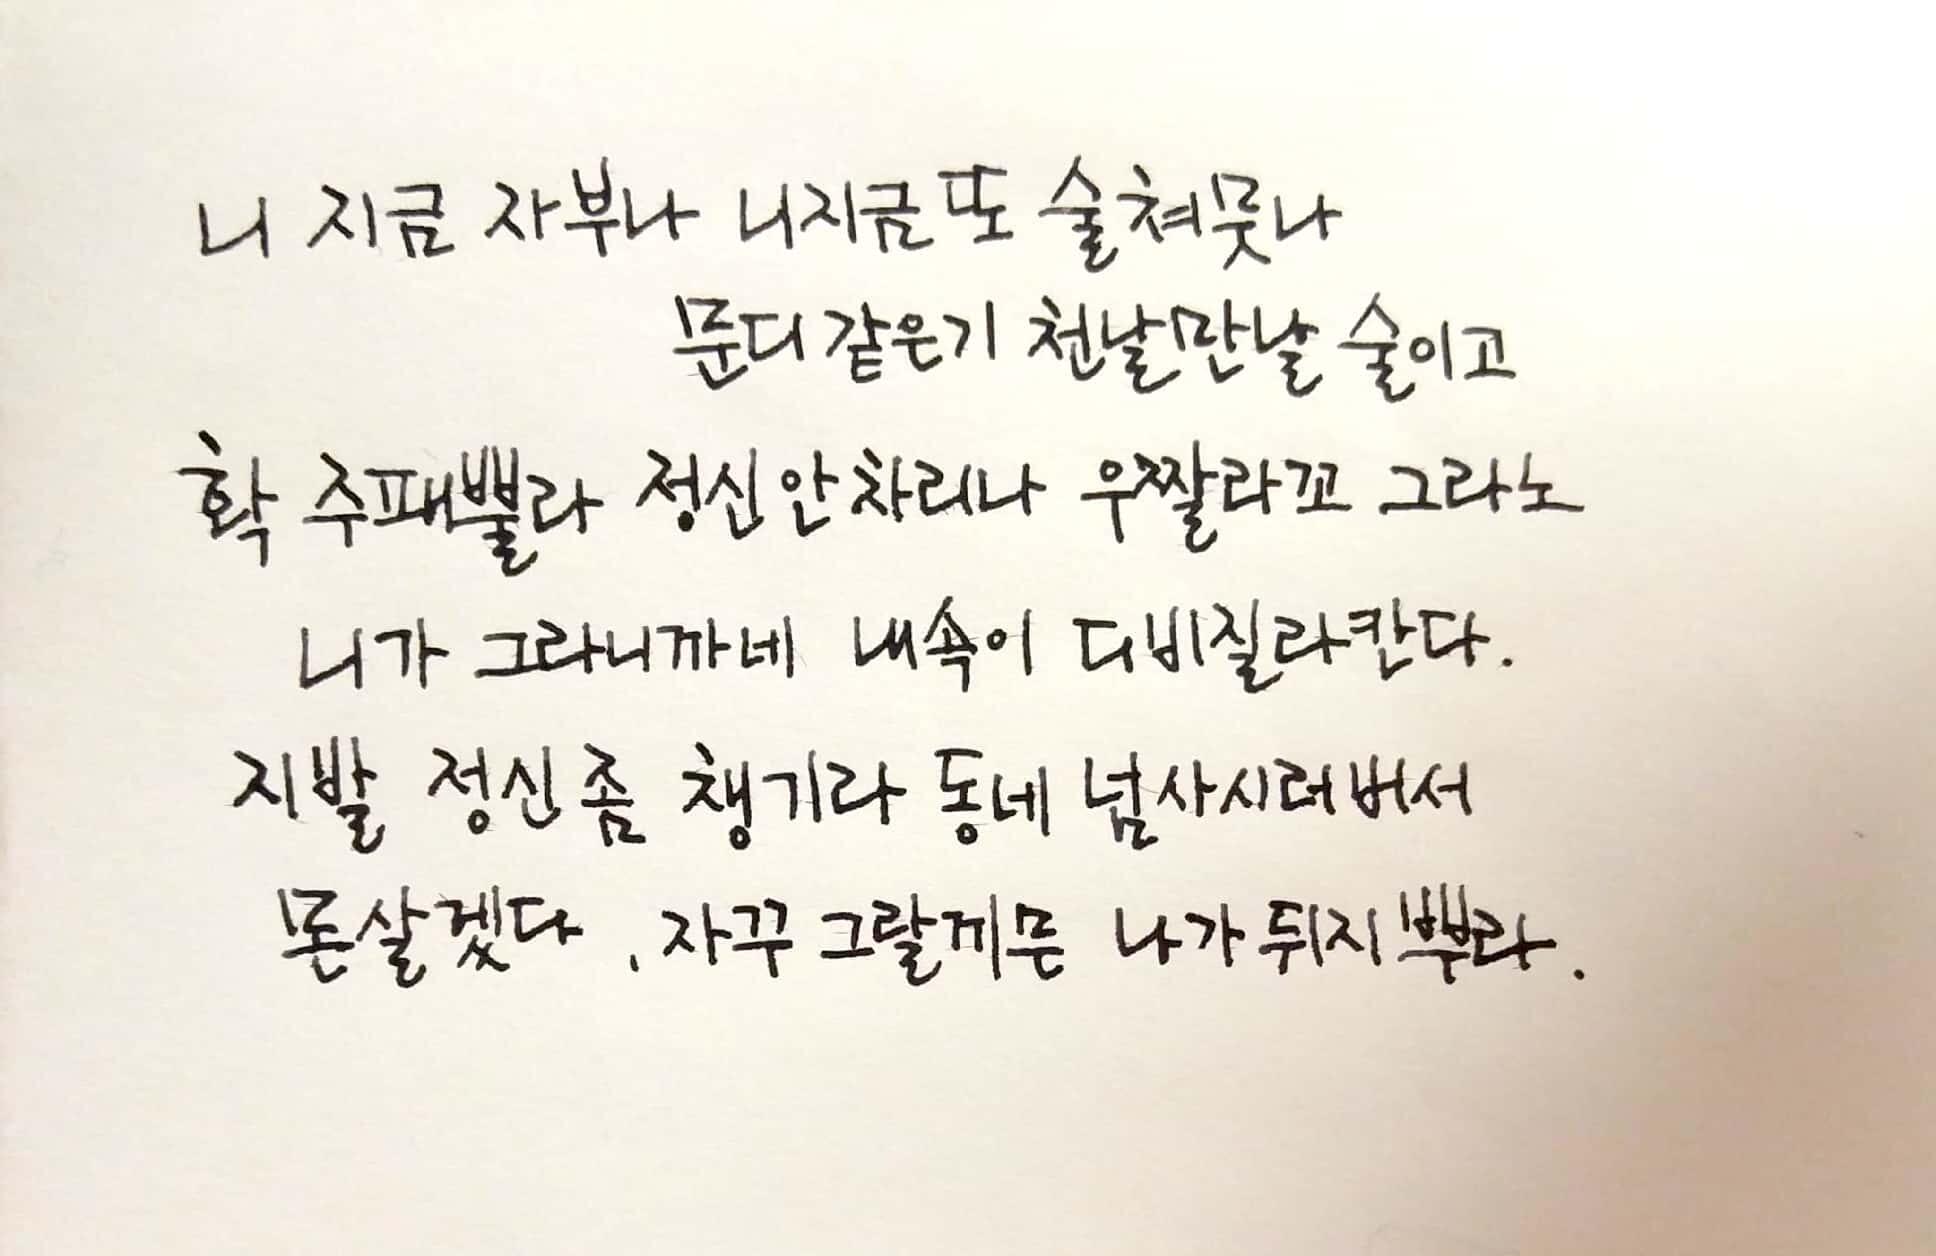 니 지금 자부나 니지금 또 술쳐뭇나
문디 같은기 천날만날 술이고
확 주패뿔라 정신 안차리나 우짤라꼬 그라노
니가 그라니까네 내속이 디비질라칸다.
지발 정신 좀 챙기라 동네 넘사시러버서
몬살겠다. 자꾸 그랄께믄 나가 뒤지뿌라.